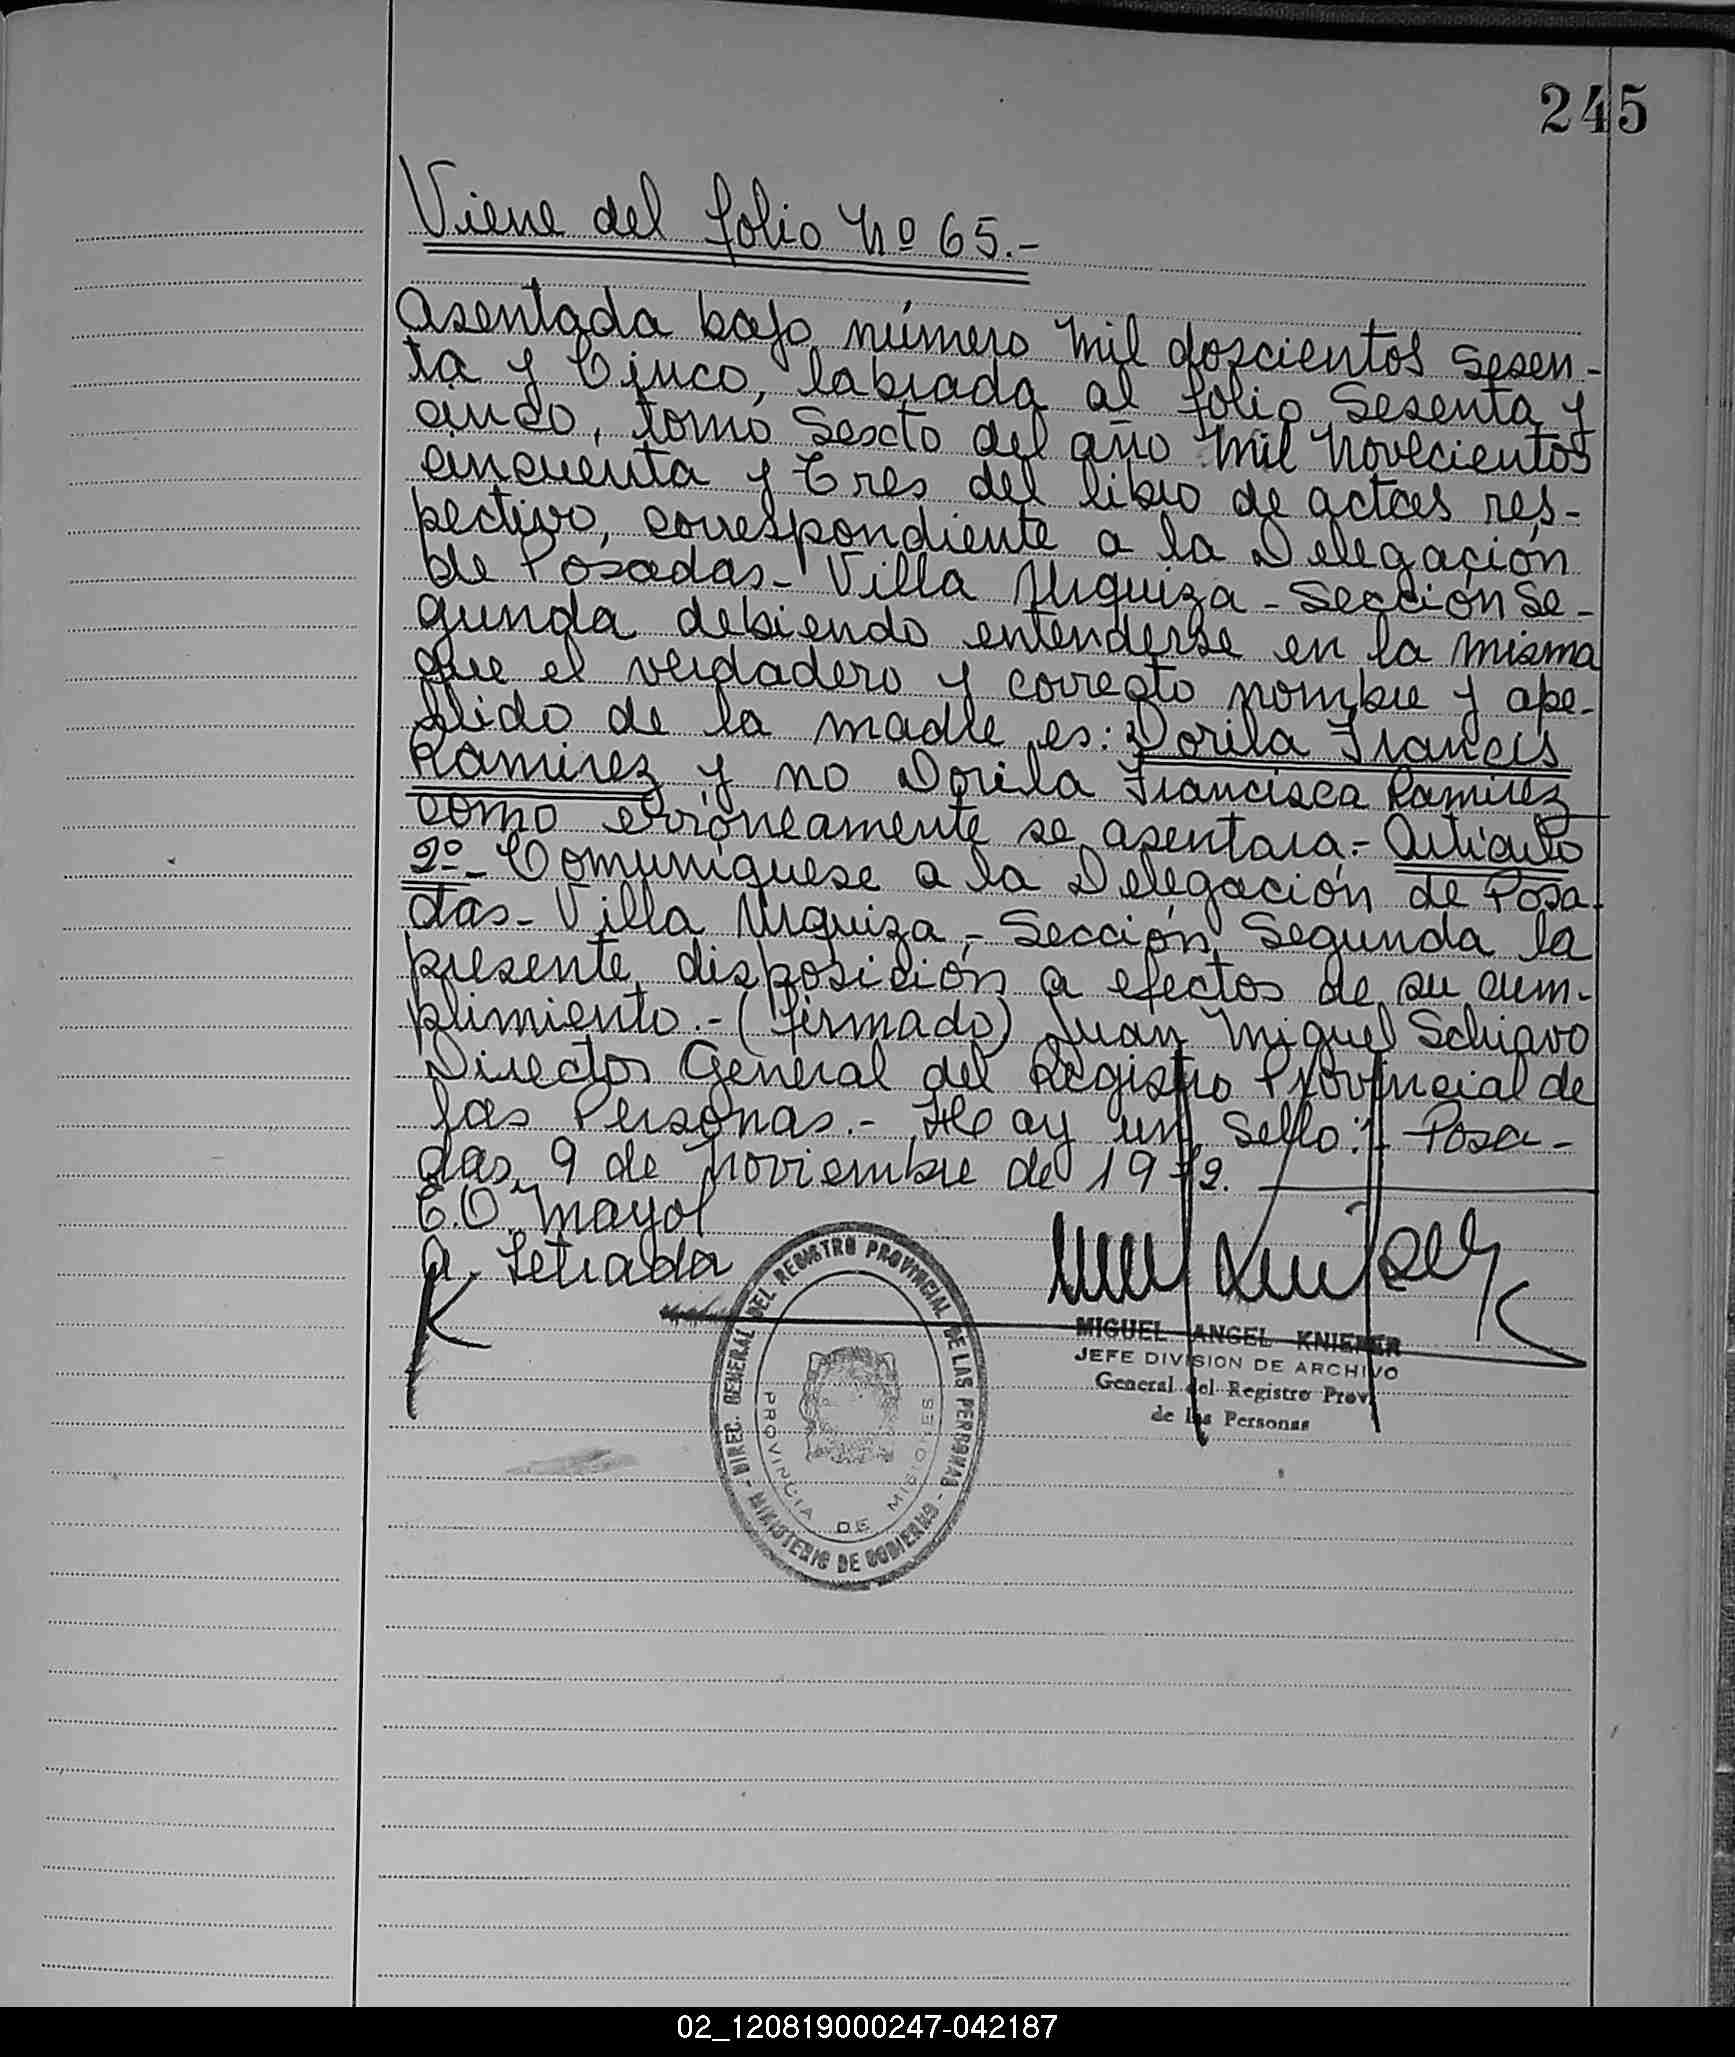 245
Viene del folio Nº 65.-
asentada bajo número mil doscientos sesen-
ta y Cinco, labrada al folio Sesenta y
cinco, tomo Sexto del año mil novecientos
cincuenta y Tres del libro de actas res-
pectivo, correspondiente a la Delegación
de Posadas- Villa Urquiza - Sección Se-
gunda debiendo entenderse en la misma
que el verdadero y correcto nombre y ape-
llido de la madre es: Dorila Francis
Ramirez y no Dorila Francisca Ramirez
como erróneamente se asentara.- Artículo
2º- Comuníquese a la Delegación de Posa-
das- Villa Urquiza,- Sección Segunda la
presente disposición a efectos de su cum-
plimiento.- (firmado) Juan Miguel Schiavo
Director General del Registro Provincial de
las Personas.- Hay un Sello:- Posa-
das, 9 de noviembre de 1972.
E.O. Mayor
a. Letrada
MIGUEL ANGEL KNIEPER
JEFE DIVISION DE ARCHIVO
General del Registro Prov.
de las Personas
DIREC. GENERAL DEL REGISTRO PROVINCIAL DE LAS PERSONAS - MINISTERIO DE GOBIERNO -
PROVINCIA DE MISIONES
02_120819000247-042187